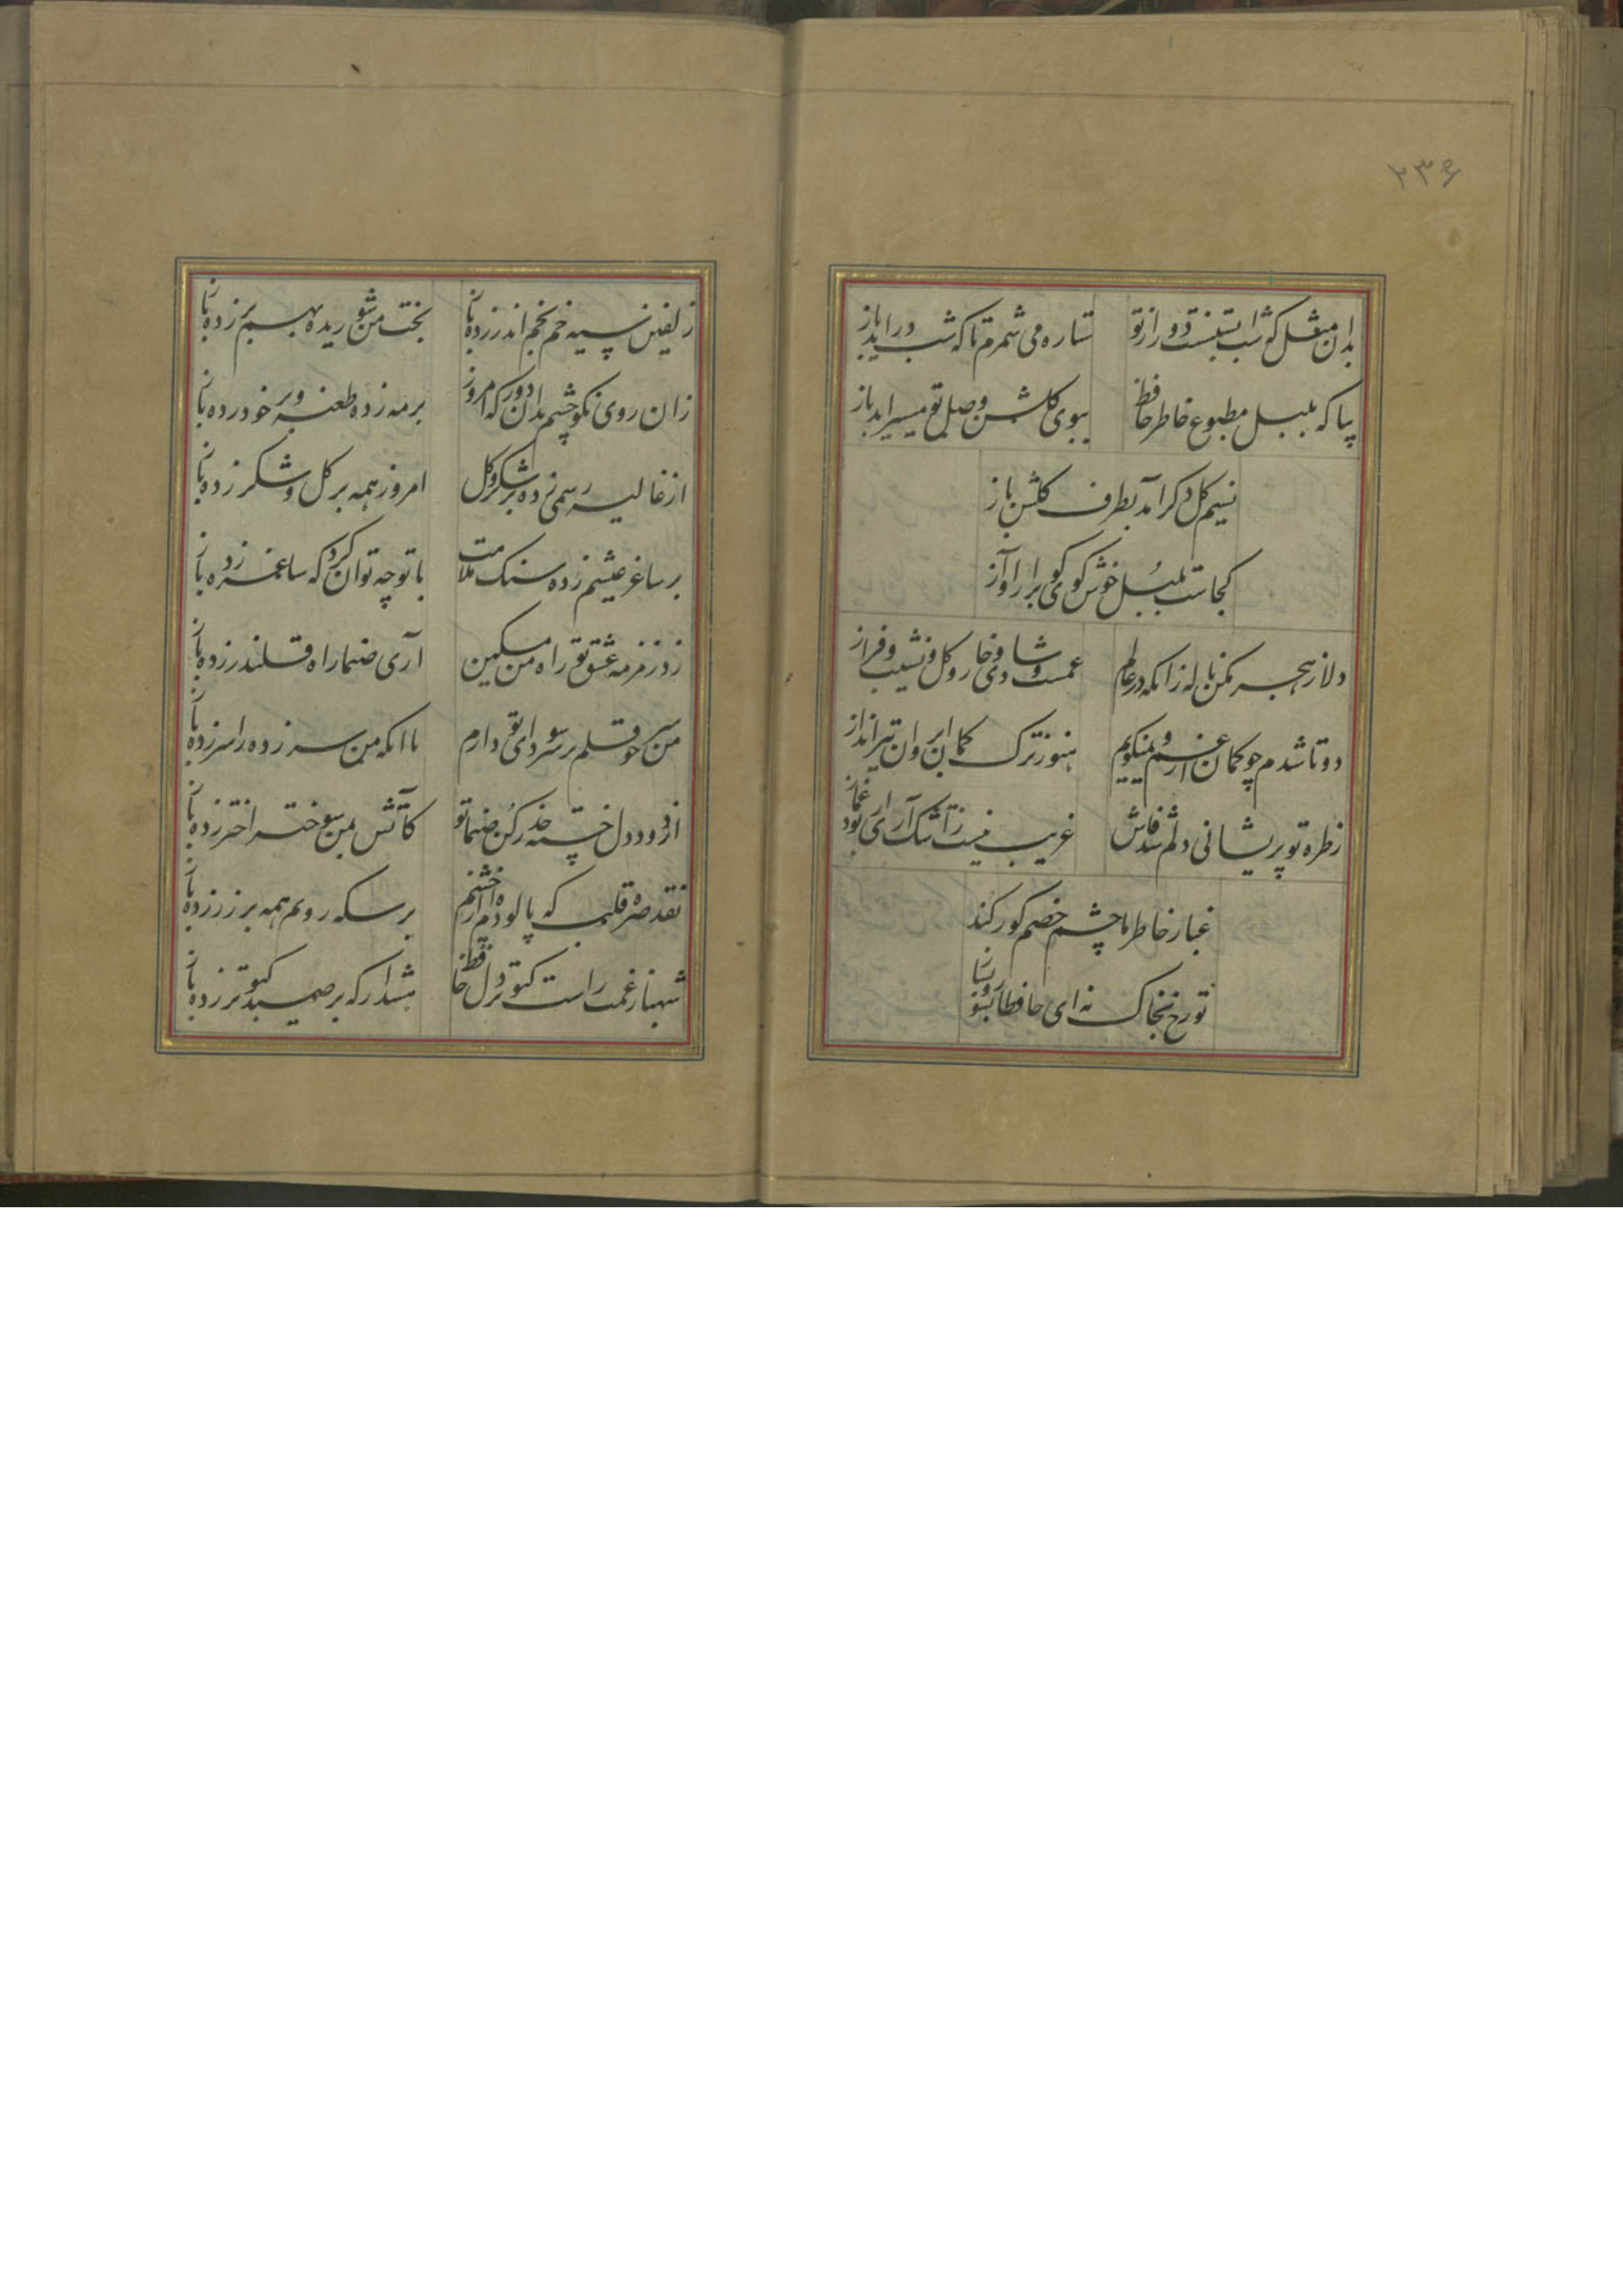 ۲۳۶
بدان مثل که شب آبستنست دور از تو
ستاره می شمرم تا که شب درآید باز
بیا که بلبل مطبوع خاطر حافظ
ببوی گلشن وصل تو میسراید باز
نسیم کل دکر آمد بطرف کلشن باز
کجاست بلبل خوش کوی کو برار آواز
دلا ز هجر مکن ناله زانکه در عالم
غمست و شادی و خار و کل و نشیب و فراز
دوتا شدم چو کمان از غم و نمیکویم
هنوز ترک کمان ابروان تیرانداز
ز طره تو پریشانی دلم شد فاش
غریب نیست ز اشک آری ار بود غماز
غبار خاطر ما چشم خصم کور کند
تو رخ بخاک نه ای حافظا بسوز و بساز
زلفین سیه خم بخم اندر زده باز
بخت من شوریده بهم بر زده باز
زان روی نکو چشم بدان دور که امروز
بر مه زده طعنه و بر خور زده باز
از غالیه رسمی زده بر شکر و کل
امروز همه بر کل و شکر زده باز
بر ساغر عیشم زده سنک ملامت
با تو چه توان کرد که ساغر زده باز
زد زمزمه عشق تو راه من مسکین
آری صنما راه قلندر زده باز
من سر چو قلم بر سر سودای تو دارم
با آنکه من سر زده را سر زده باز
از دود دل خسته حذر کن صنما تو
کآتش بمن سوخته اختر زده باز
نقد صره قلبم که پالوده ام از چشم
بر سکه رویم همه بر زر زده باز
شهباز غمت راست کبوتر دل حافظ
هشدار که بر صید کبوتر زده باز